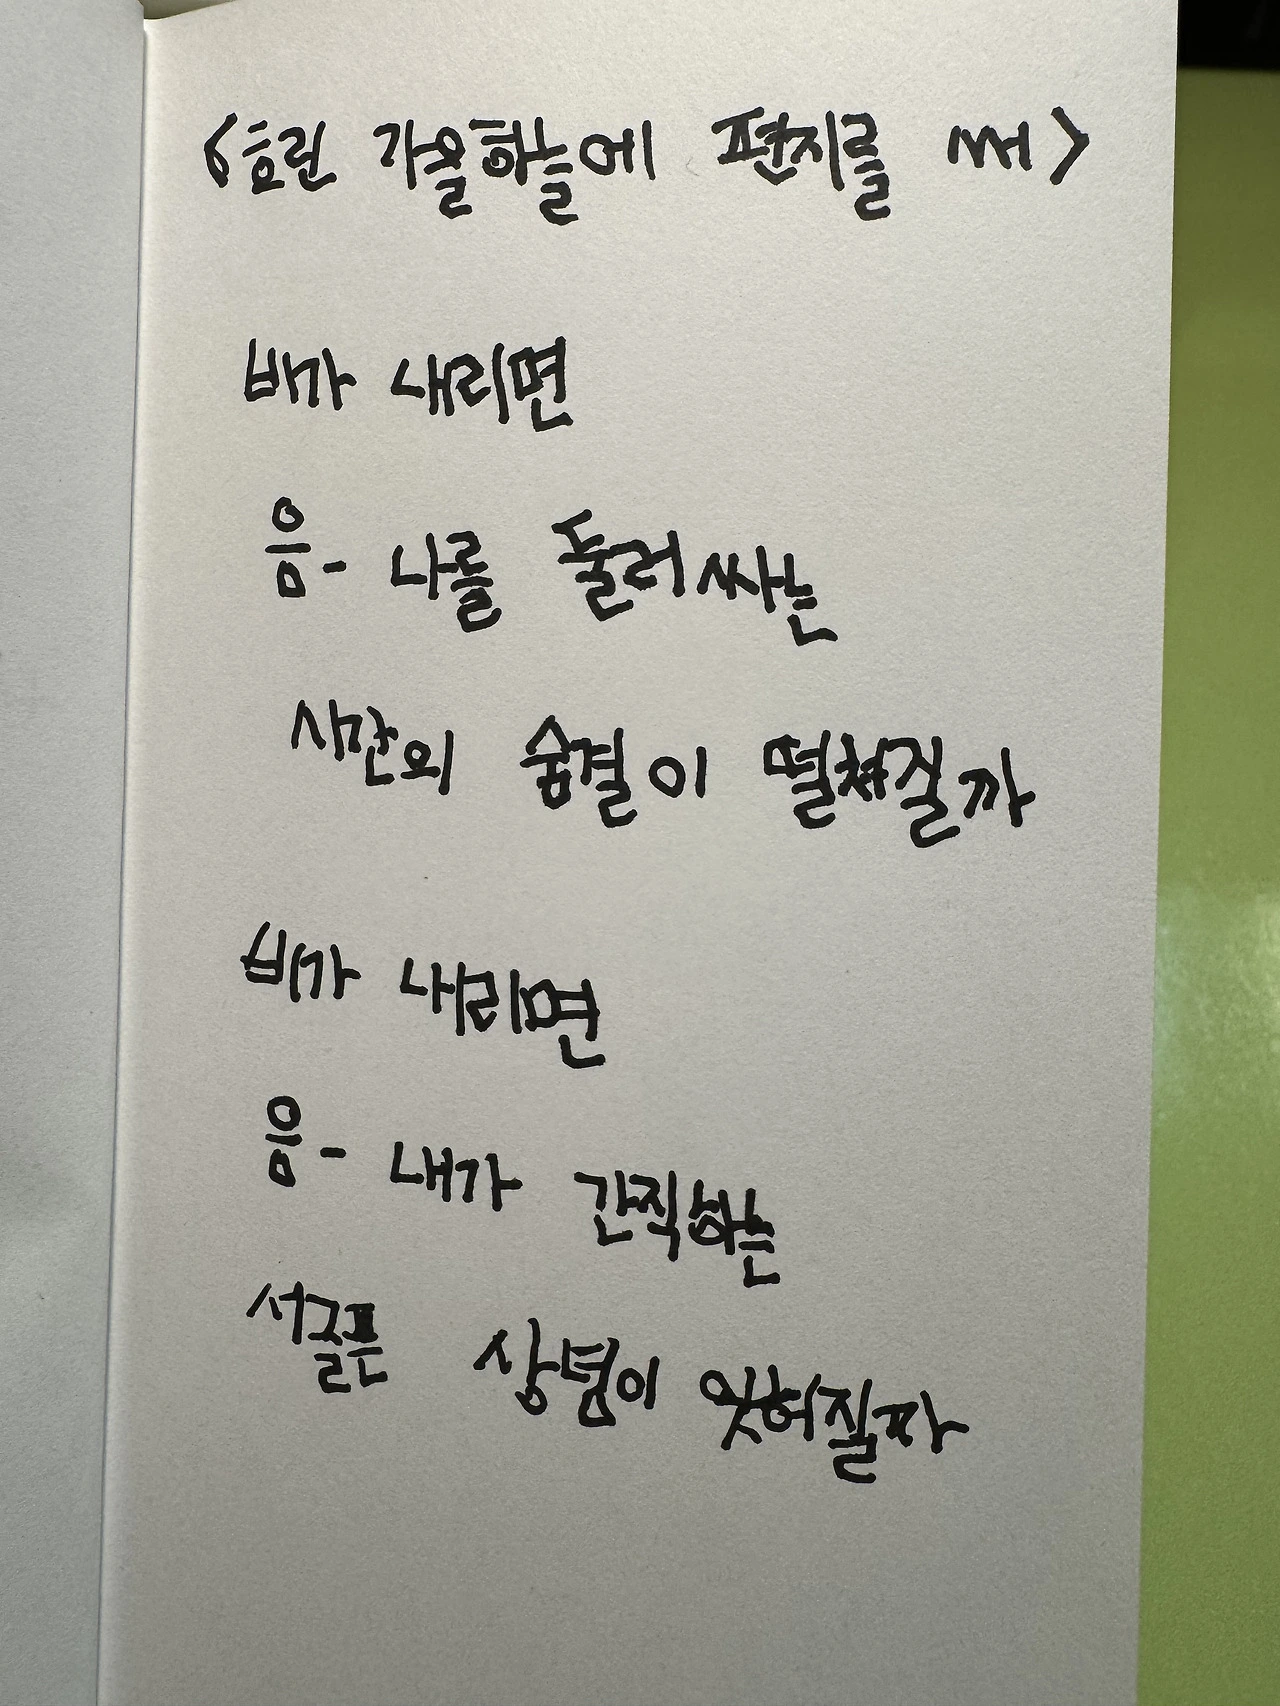 <흐린 가을하늘에 편지를 써>
비가 내리면
음- 나를 둘러싸는
시간의 숨결이 떨쳐질까
비가 내리면
음- 내가 간직하는
서글픈 상념이 잊혀질까